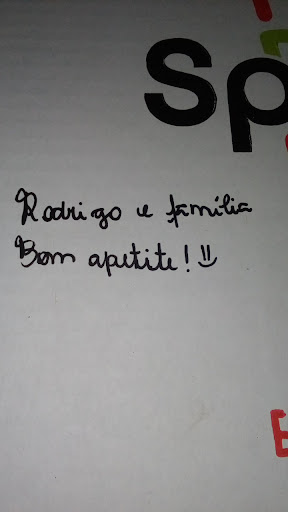 Sp
Rodrigo e família
Bom apetite! =)
E